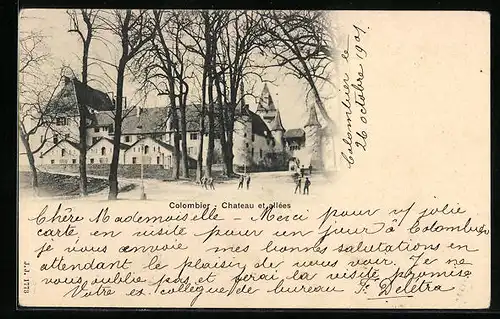 Colombier le
26 octobre 1901
Colombier - Chateau et allées
Chère Mademoiselle - Merci pour jolie
carte en visite pour un jour à Colombier
je vous envoie mes bonnes salutations en
attendant le plaisir de vous voir. Je ne
vous oublie pas et ferai la visite promise
Votre ex. collègue de bureau Deletra
J. J. 1778